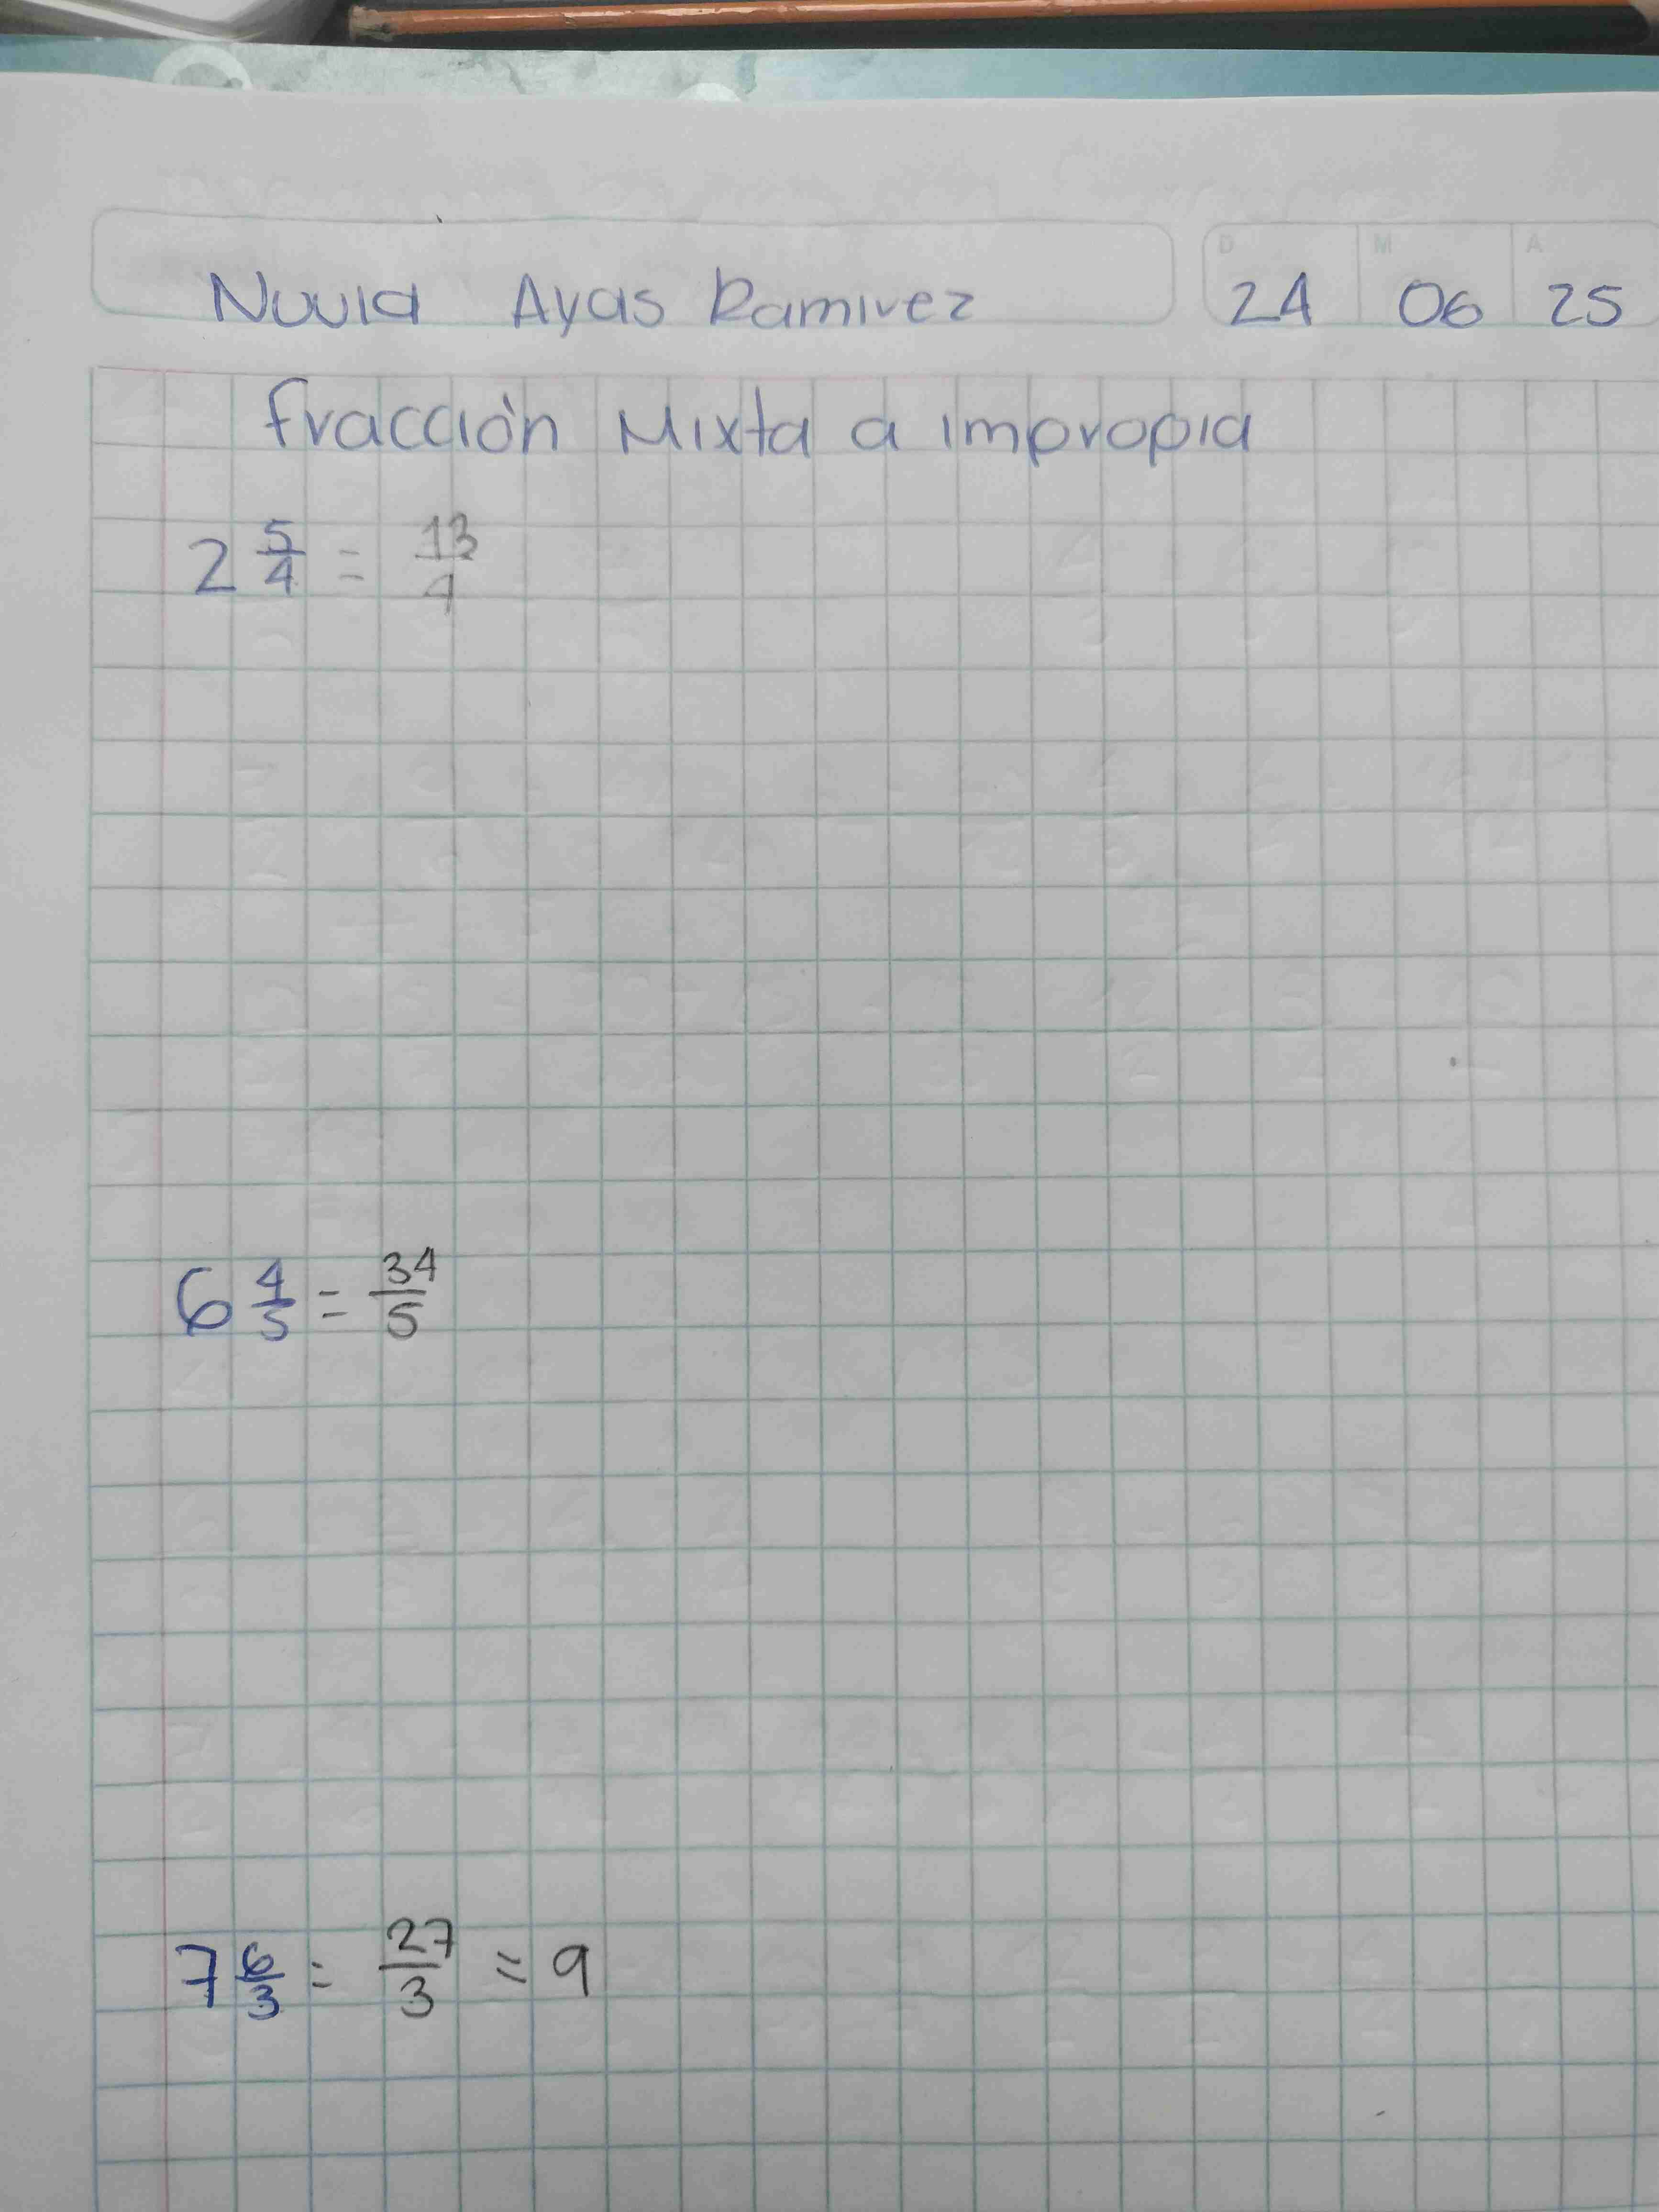 D M A
Nuvia Ayas Ramirez 24 06 25
fracción Mixta a impropia
2 5/4 = 13/4
6 4/5 = 34/5
7 6/3 = 27/3 = 9